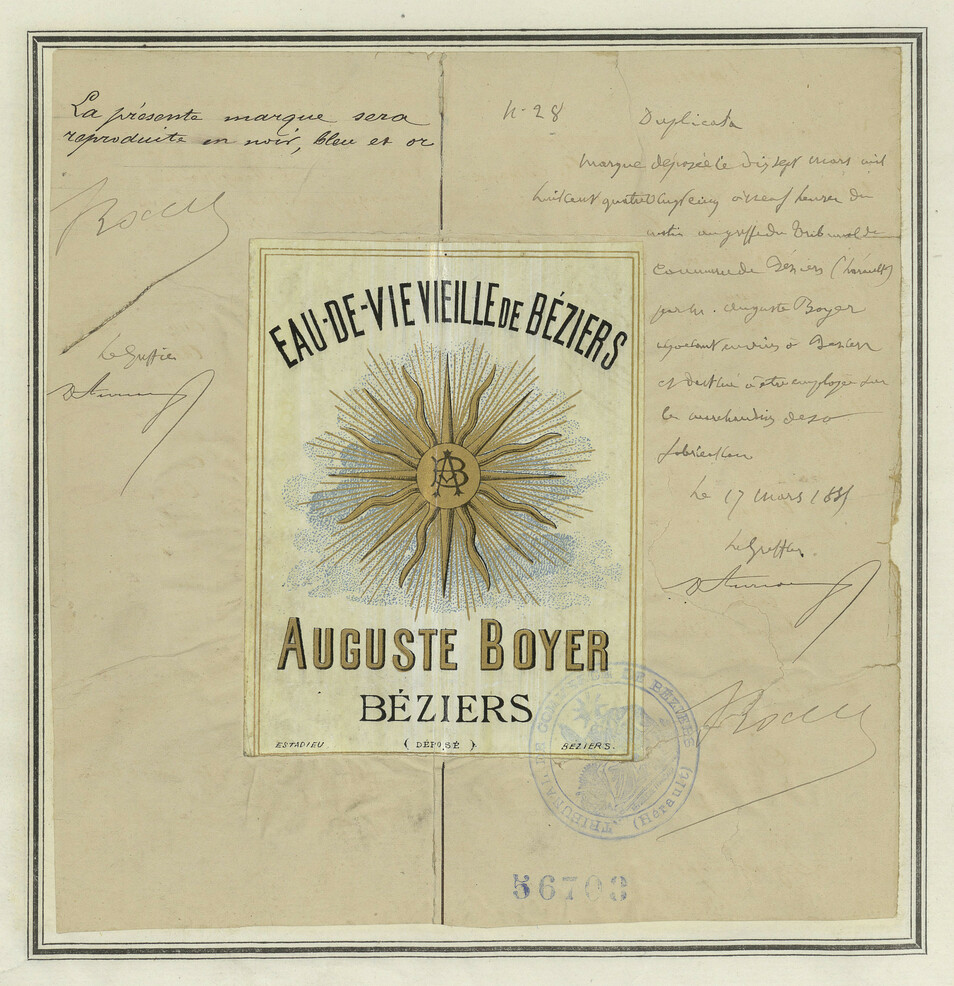 La présente marque sera
reproduite en noir, bleu et or
Le Greffier
N- 28
Duplicata
Marque déposée le dix sept mars mil
huit cent quatre vingt cinq à neuf heures du
matin au greffe du Tribunal de
Commerce de Béziers (hérault)
par M. Auguste Boyer
négociant en vins à Béziers
et destinée à être employée sur
les marchandises de sa
fabrication
Le 17 mars 1885
Le Greffier
EAU-DE-VIE VIEILLE DE BÉZIERS
AB
AUGUSTE BOYER
BÉZIERS
ESTADIEU
( DÉPOSÉ )
BÉZIERS.
TRIBUNAL DE COMMERCE DE BÉZIERS
(Hérault)
56703